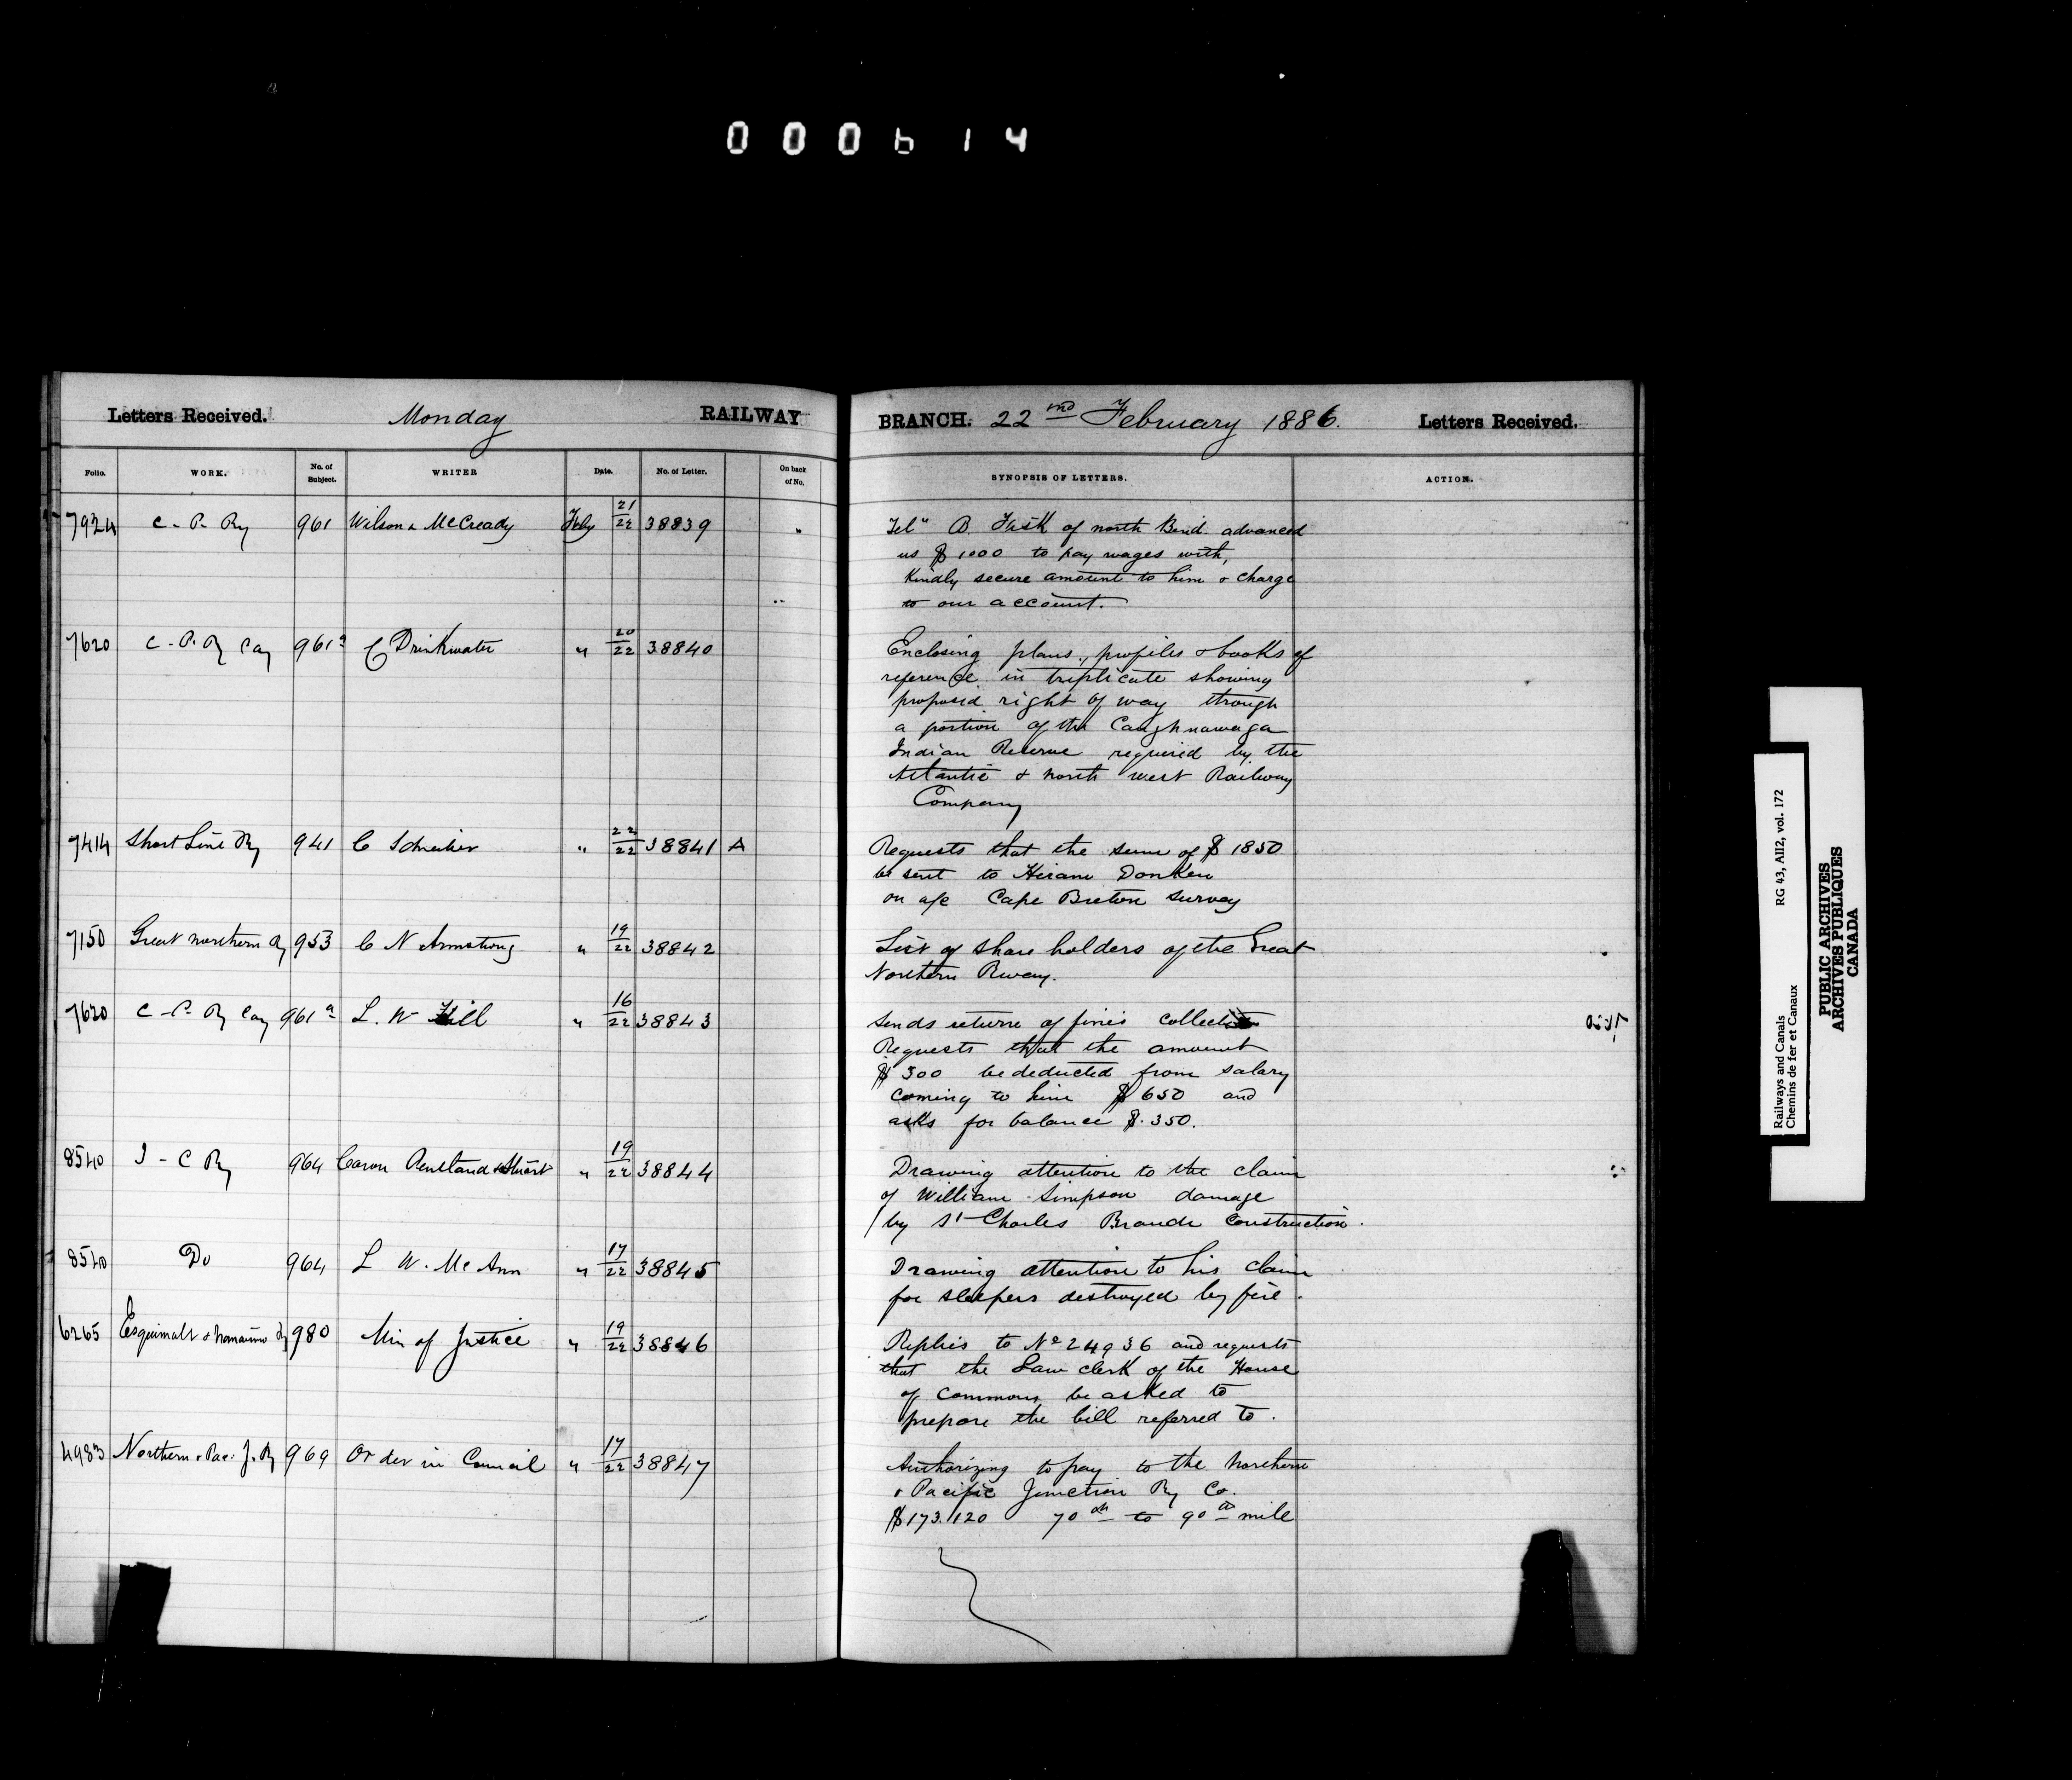 000614
Letters Received. Monday RAILWAY BRANCH. 22nd February 1886. Letters Received.
Folio. WORK. No. of Subject. WRITER Date. No. of Letter. On back of No. SYNOPSIS OF LETTERS. ACTION.
7924 C - P. Ry 961 Wilson & McCready Feby 21/22 38839 "
Tel" B. Fisk of north Bend advanced
us $1000 to pay wages with,
Kindly secure amount to him & charge
to our account.
7620 C - P. Ry Coy 961a C Drinkwater " 20/22 38840
Enclosing plans, profiles & books of
reference in triplicate showing
proposed right of way through
a portion of the Caughnawaga
Indian Reserve required by the
Atlantic & north west Railway
Company
7414 Short Line Ry 941 C Schreiber " 22/22 38841 A
Requests that the sum of $1850
be sent to Hiram Donken
on a/c Cape Breton survey
7150 Great northern Ry 953 C N Armstrong " 19/22 38842
List of share holders of the Great
Northern Rway.
7620 C - P. Ry Coy 961a L. W Hill " 16/22 38843
Sends return of fines
Requests that the amount
$300 be deducted from salary
coming to him $650 and
asks for balance $.350.
8540 I - C Ry 964 Caron Pentland & Stuart " 19/22 38844
Drawing attention to the claim
of William Simpson damage
by St Charles Branch construction.
8540 Do 964 L W. McAnn " 17/22 38845
Drawing attention to his claim
for sleepers destroyed by fire.
6265 Esquimalt & Nanaimo Ry 980 Min of Justice " 19/22 38846
Replies to No 24936 and requests
that the Law clerk of the House
of Commons be asked to
prepare the bill referred to.
4983 Northern & Pac. J. Ry 969 Order in Council " 17/22 38847
Authorizing to pay to the Northern
& Pacific Junction Ry Co.
$173.120 70th to 90th mile
Railways and Canals RG 43, AII2, vol. 172
Chemins de fer et Canaux
PUBLIC ARCHIVES
ARCHIVES PUBLIQUES
CANADA